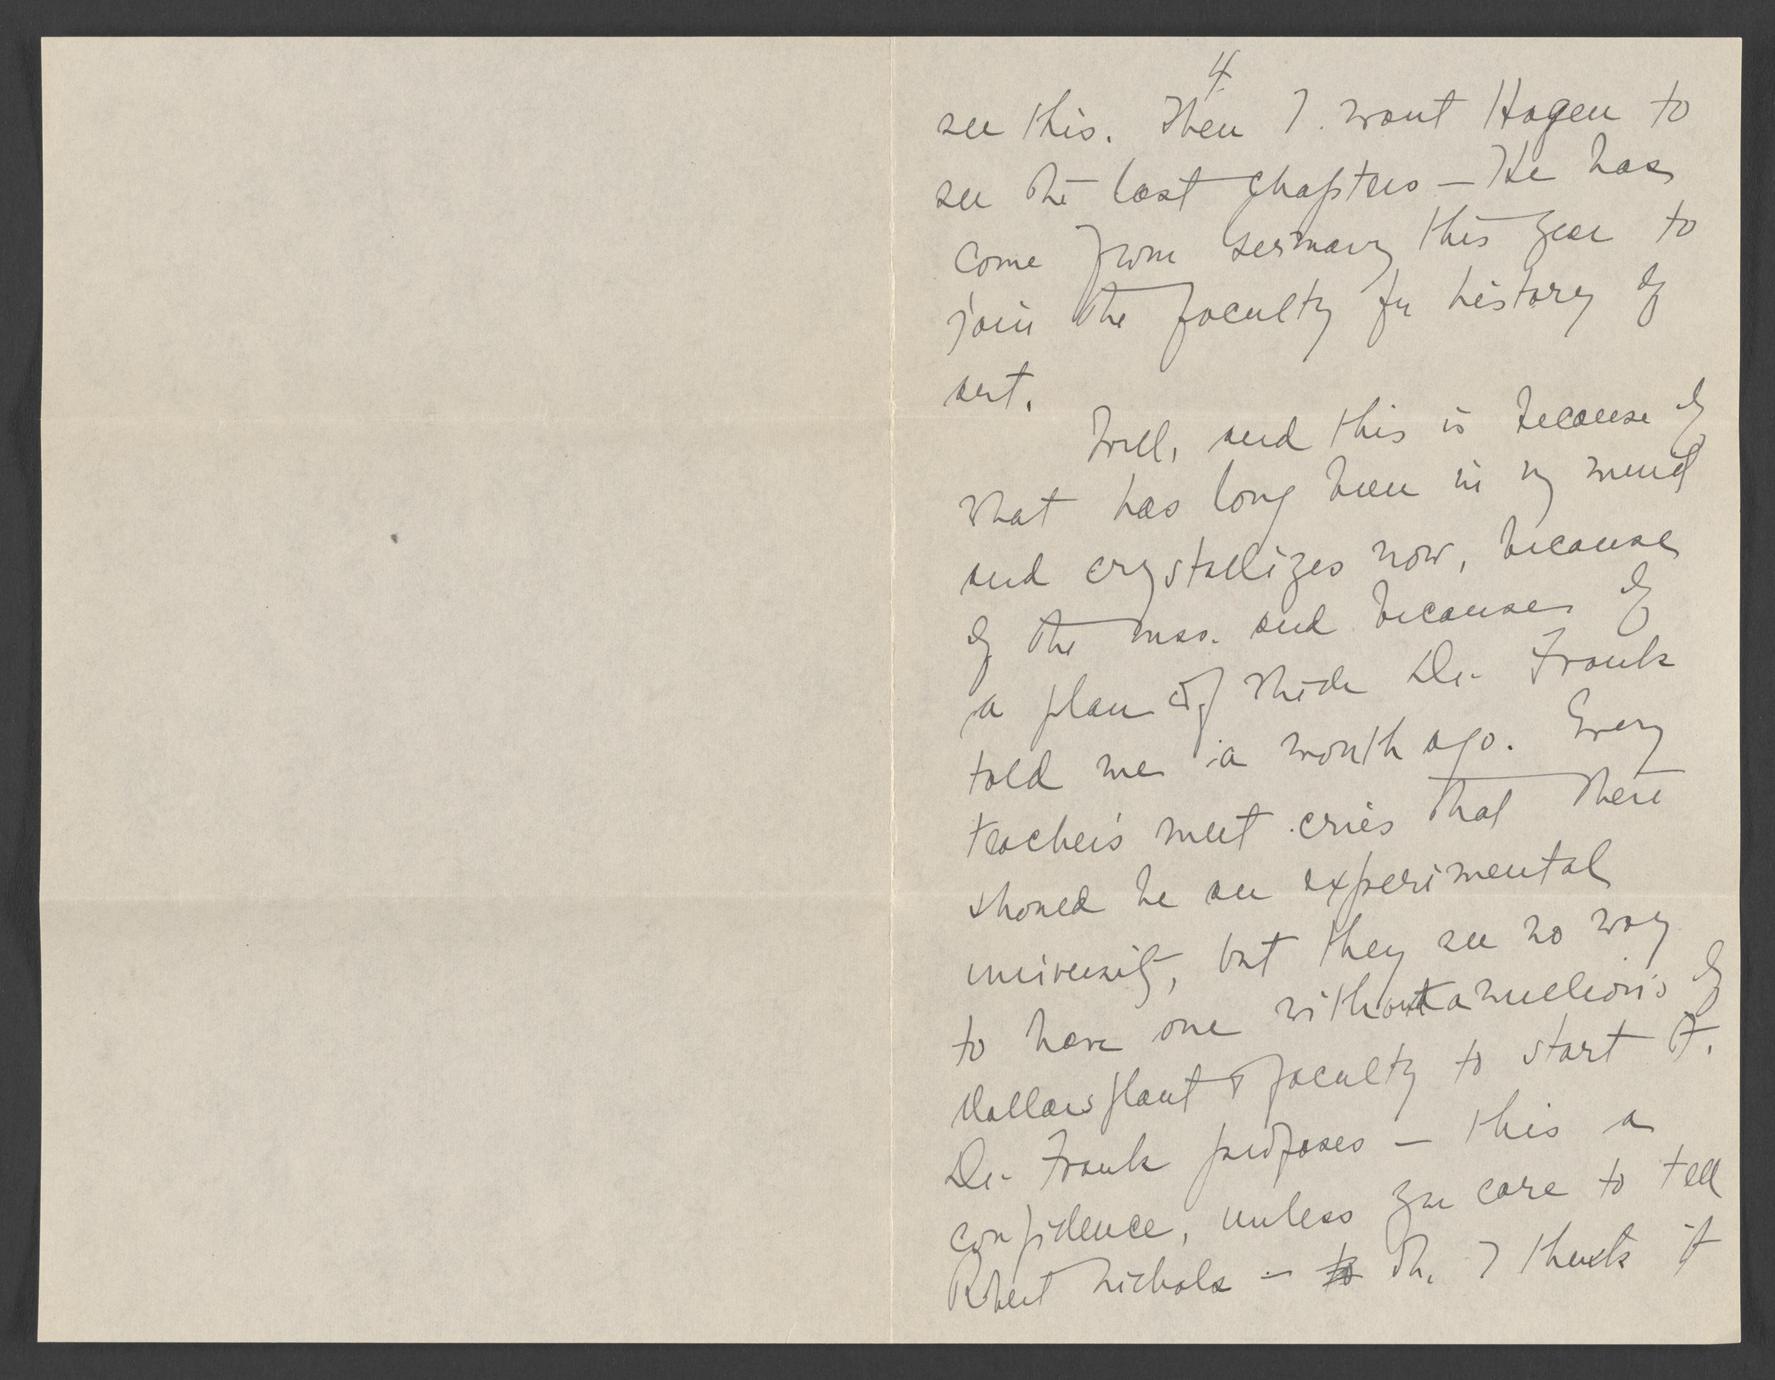 4
see this. Then I want Hagen to
see the last chapters — He has
come from Germany this year to
join the faculty for history of
art.
Well, and this is because of
what has long been in my mind
and crystallizes now, because
of the mss. and because of
a plan of which Dr. Frank
told me a month ago. Every
teacher's meet cries that there
should be an experimental
university, but they see no way
to have one without a million's of
dollars plant & faculty to start it.
Dr. Frank proposes — this a
confidence, unless you care to tell
Robert Nichols — to Oh, I think it